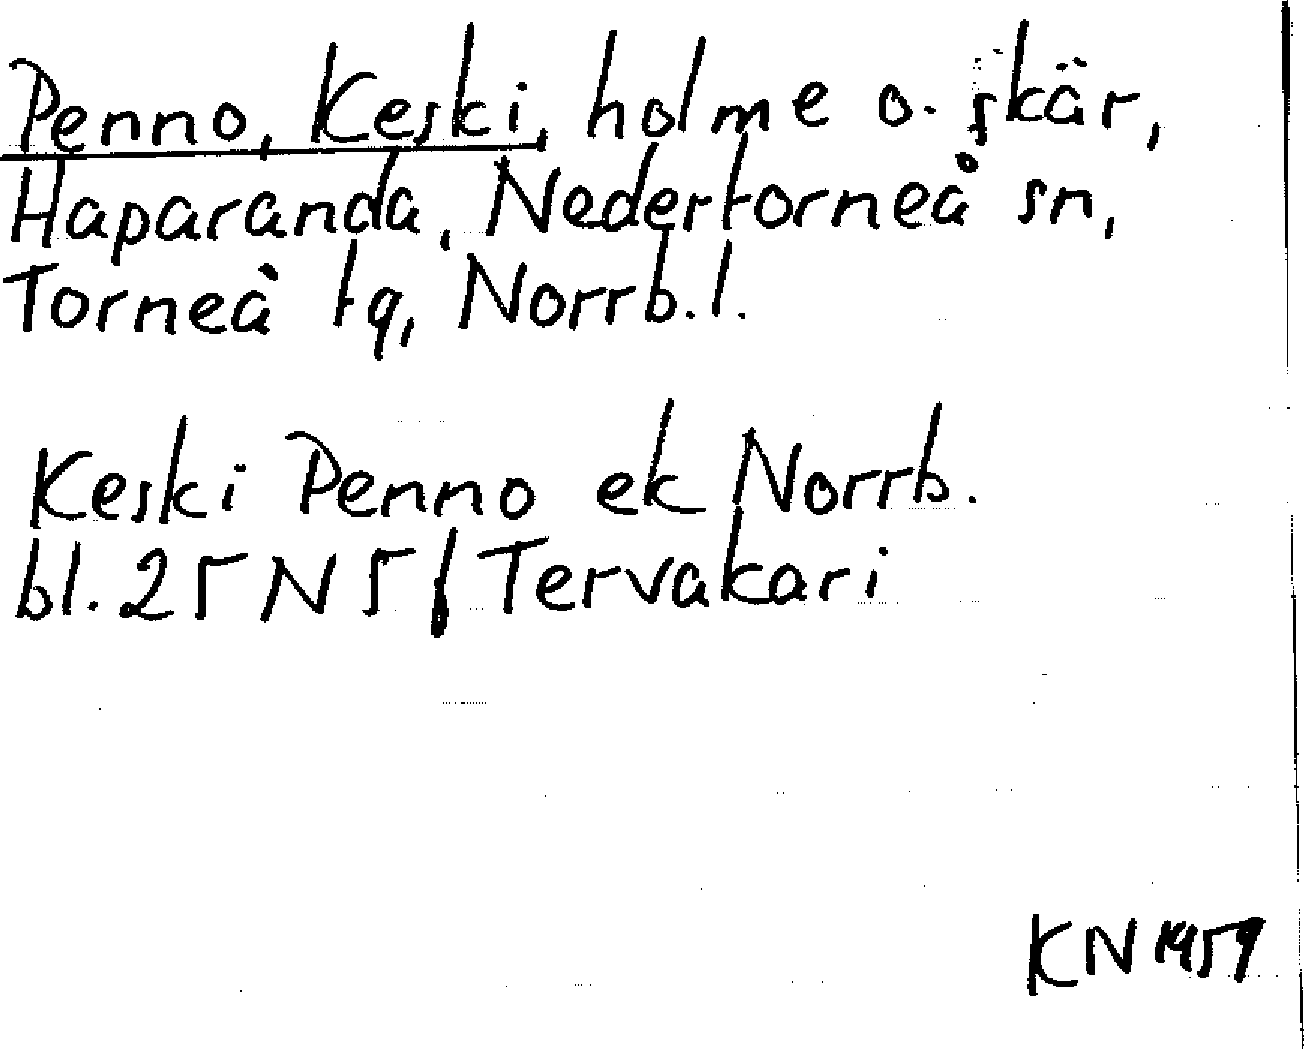 Penno, Keski, holme o. skär,
Haparanda, Nedertorneå sn,
Torneå tg, Norrb. l.
Keski Penno ek Norrb.
bl. 25 N 5 f Tervakari
KN 1959